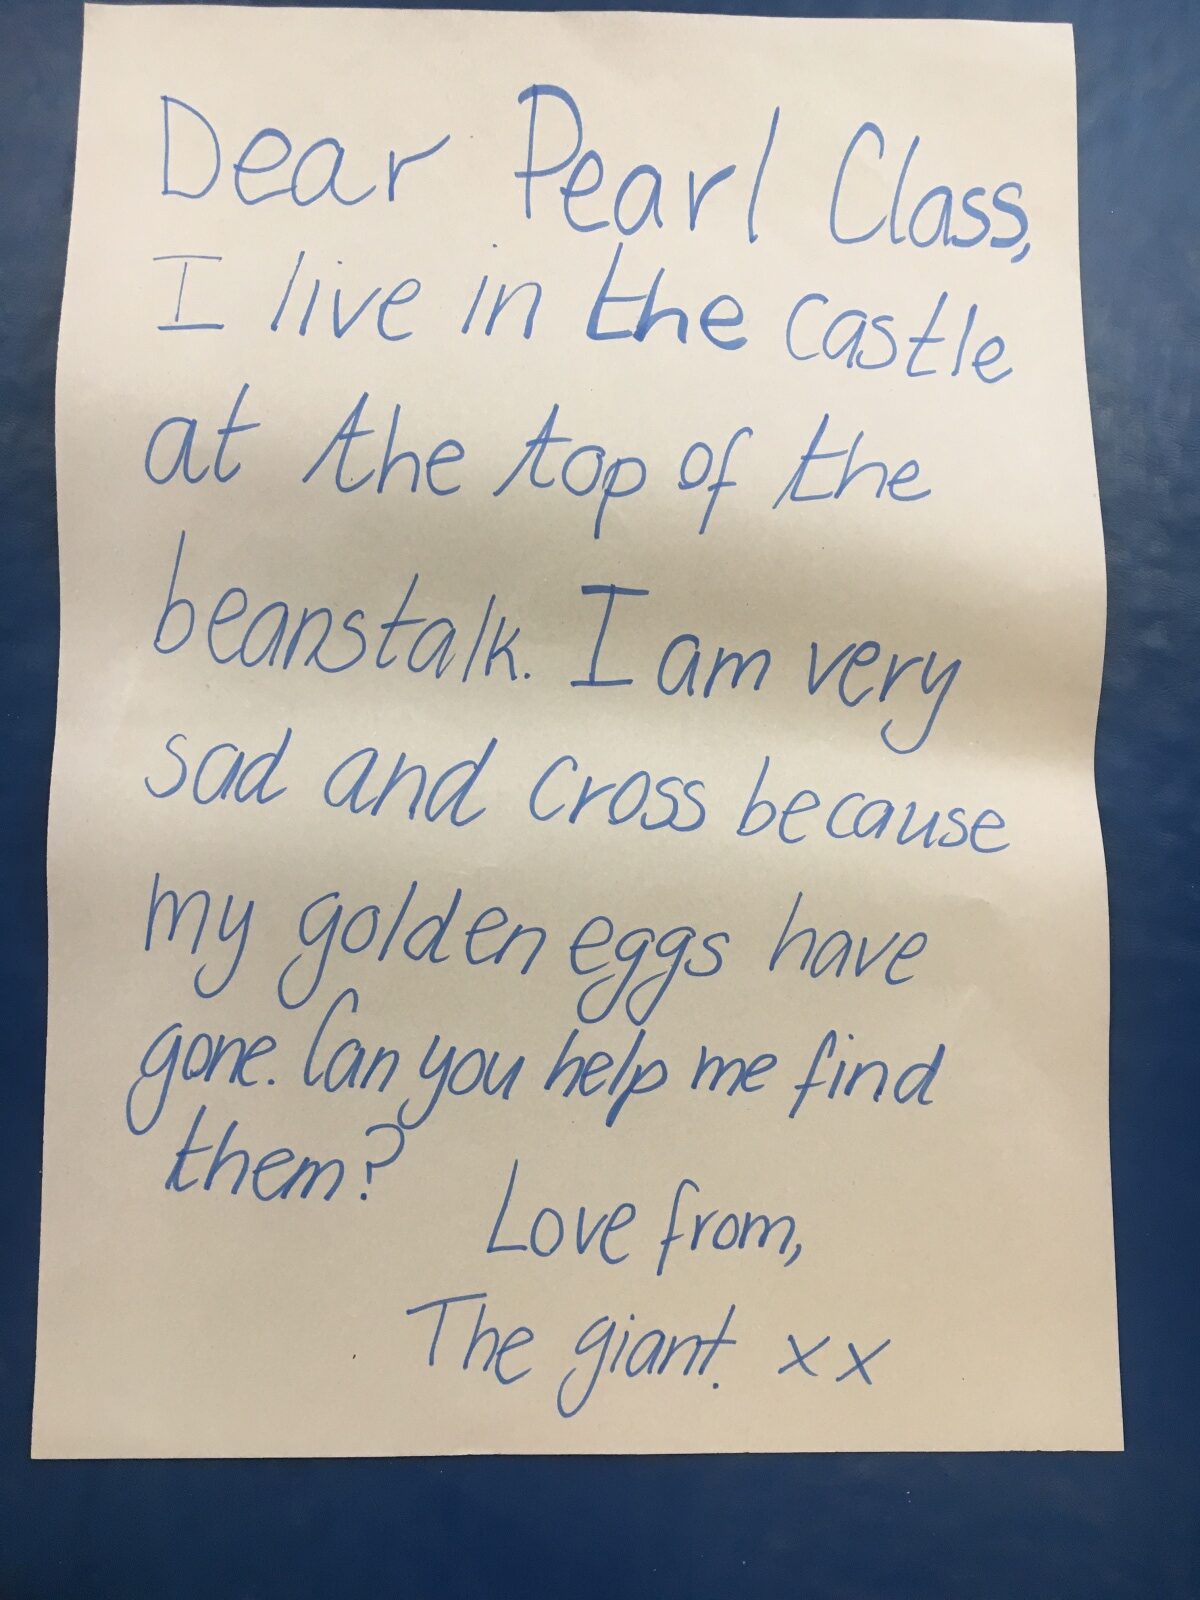 Dear Pearl Class,
I live in the castle
at the top of the
beanstalk. I am very
sad and cross because
my golden eggs have
gone. Can you help me find
them?
Love from,
The giant. xx